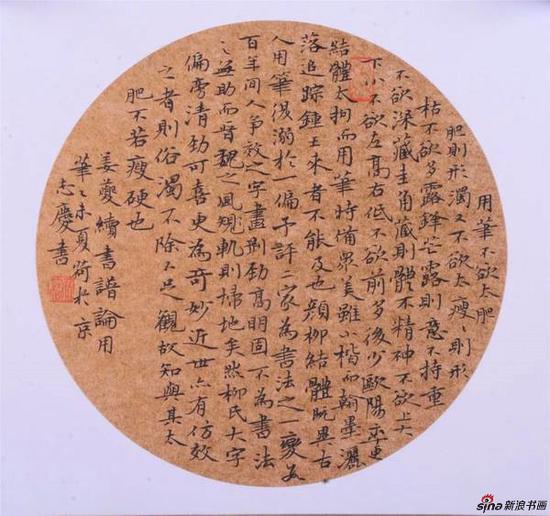 用筆不欲太肥
肥則形濁又不欲太瘦〻則形
枯不欲多露鋒芒露則意不持重
不欲深藏圭角藏則體不精神不欲上大
下小不欲左高右低不欲前多後少歐陽率更
結體太拘而用筆特備眾美雖小楷而翰墨灑
落追踪鍾王来者不能及也顏柳結體既異古
人用筆復溺於一偏予評二家為書法之一變數
百年間人爭效之字畫剛勁高明固不為書法
之無助而晉魏之風規軌則掃地矣然柳氏大字
偏旁清勁可喜更為奇妙近世亦有仿效
之者則俗濁不除不足觀故知與其太
肥不若瘦硬也
姜夔續書譜論用
筆乙未夏荷於京
志慶書
sina新浪书画